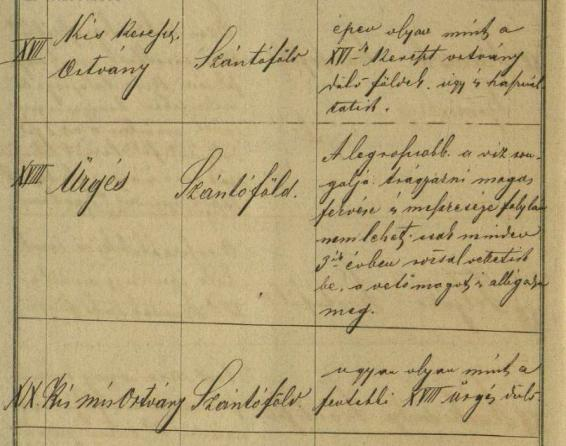 XVII Kis Kereszt. Szántóföld éppen olyan mint a
Ortvány XVI-ik Kereszt ortvány
dülő földek. úgy is használ
tatik.
XVIII Ürgés Szántóföld. A legrosszabb. a viz
trágyázni magas
fekvése és messzesége folytán
nem lehet, csak minden
3ik évben rozsal vettetik
be. a vető magot is alig adja
meg.
XIX. Kis mis Ortvány Szántóföld. ugyan olyan mint a
fentebbi XVIII Ürgés dülő.